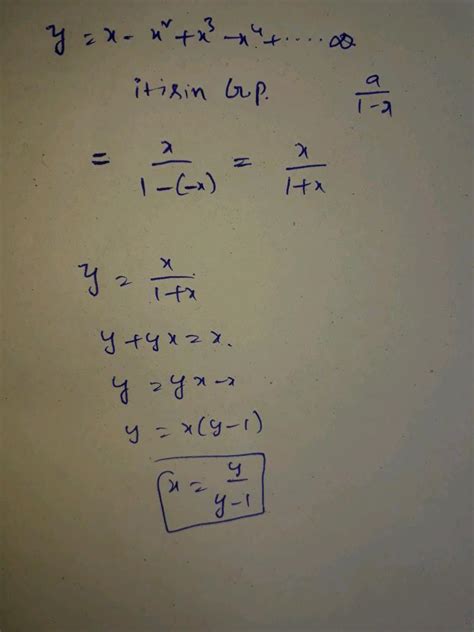 y = x - x² + x³ - x⁴ + ..... ∞
it is in G.p. a/(1-r)
= x/(1-(-x)) = x/(1+x)
y = x/(1+x)
y + yx = x.
y = yx - x
y = x(y-1)
x = y/(y-1)